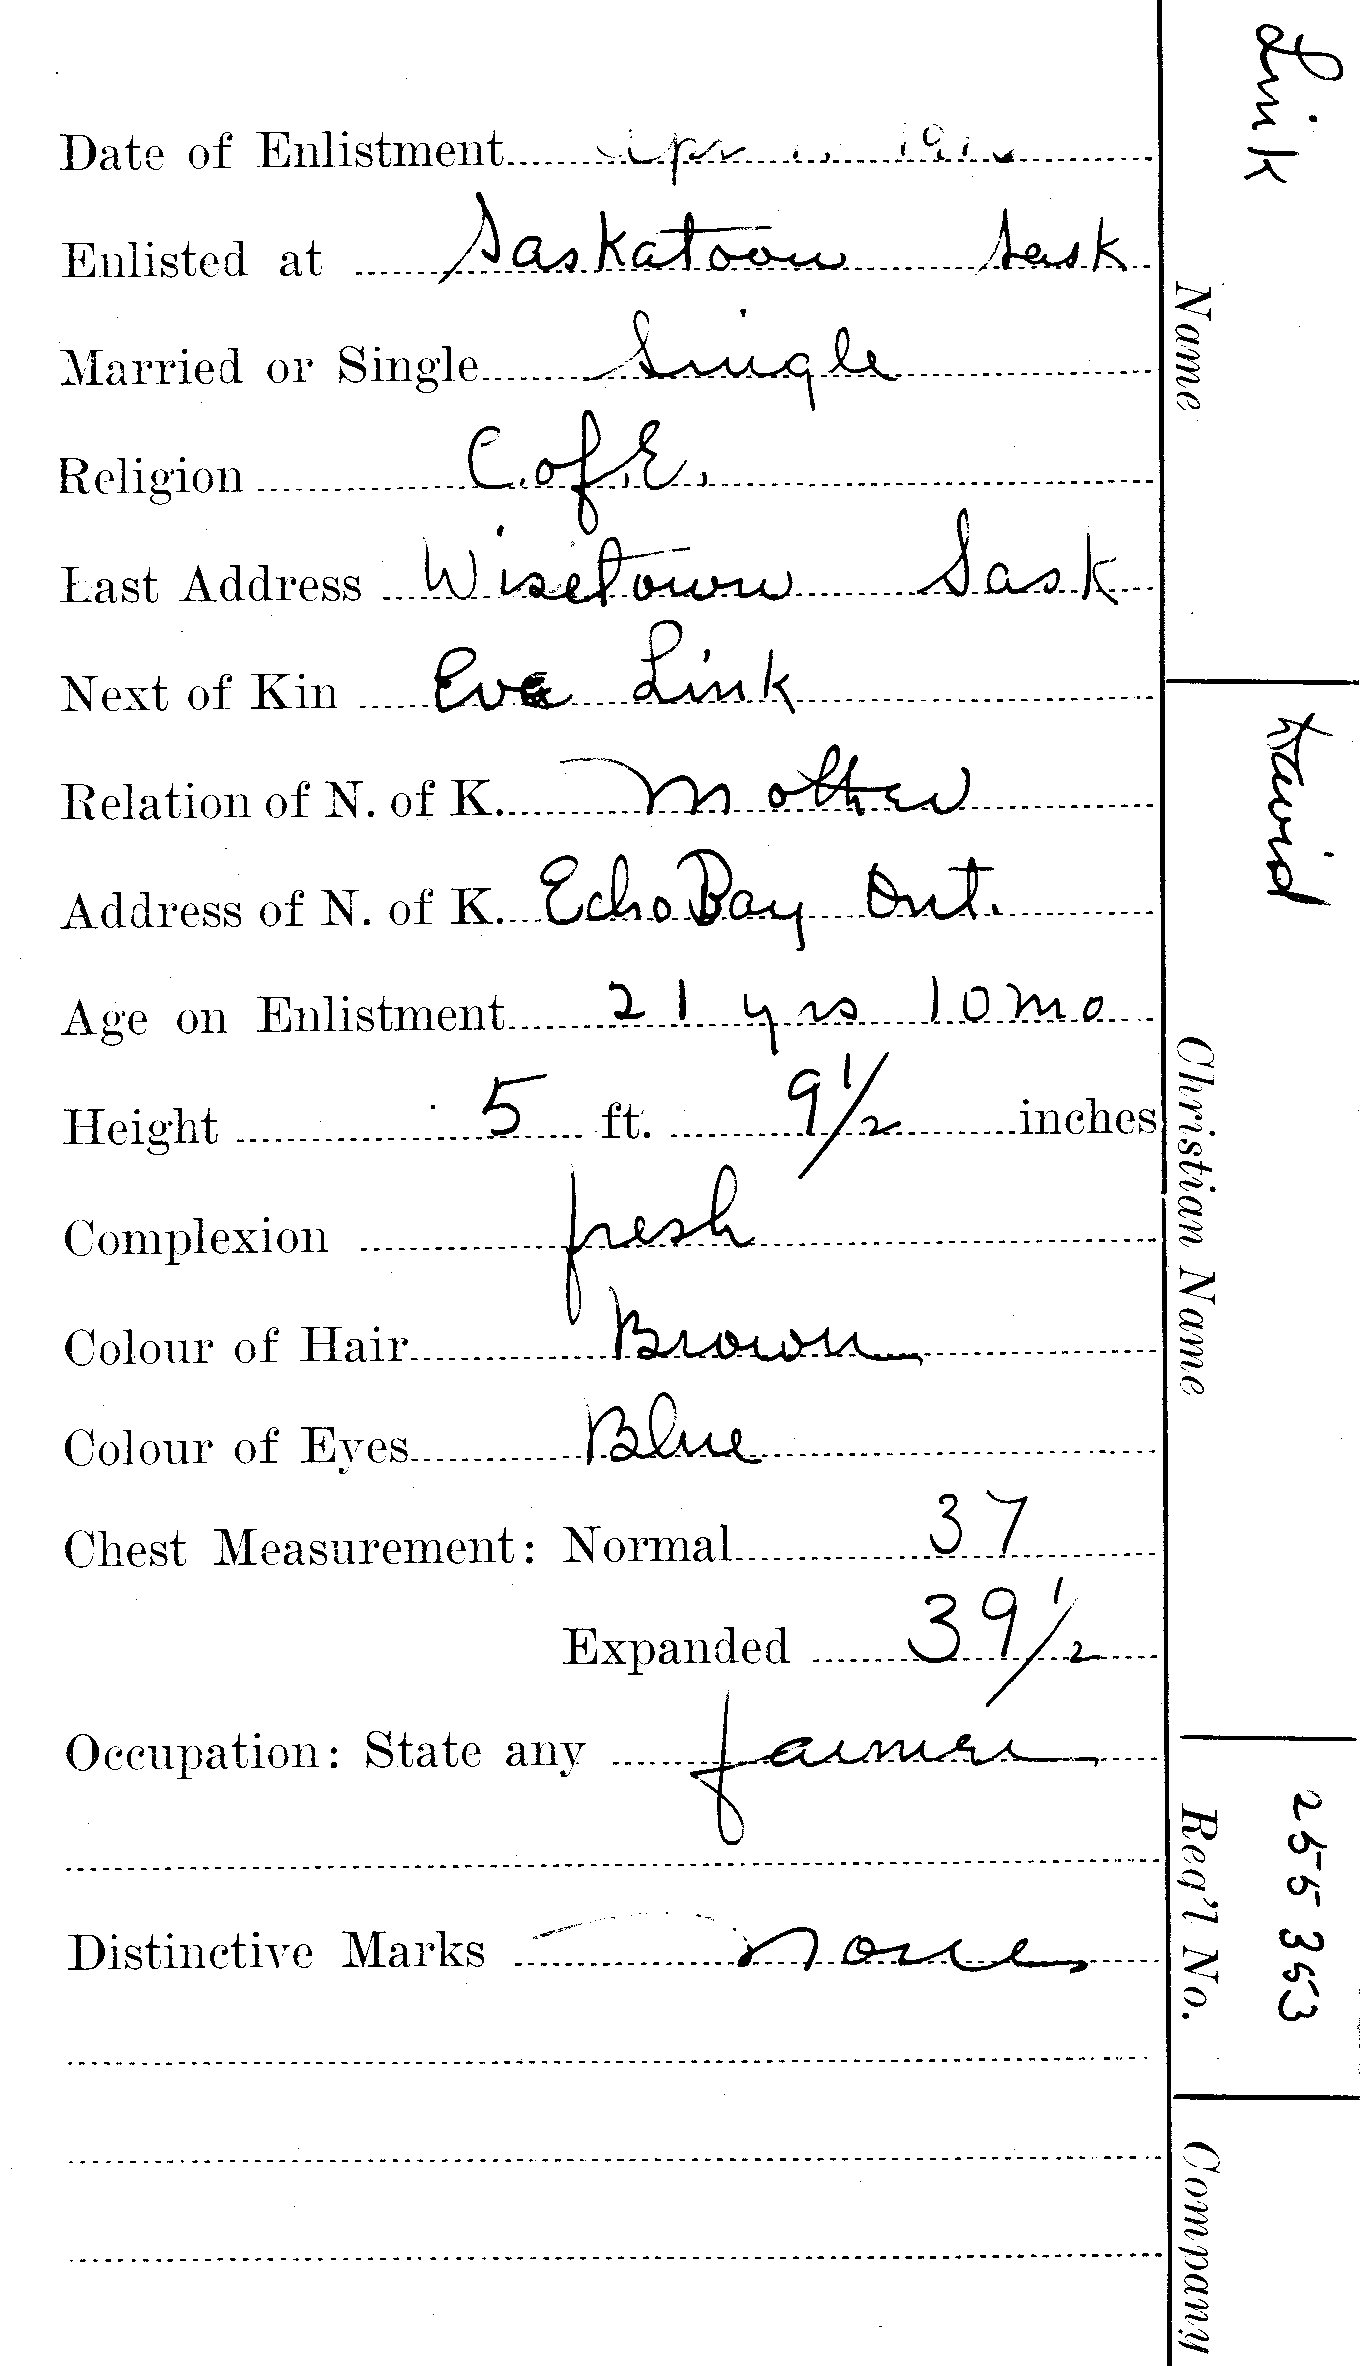 Date of Enlistment Apr
Enlisted at Saskatoon Sask
Married or Single Single
Religion C. of E.
Last Address Wisetown Sask
Next of Kin Eva Link
Relation of N. of K. Mother
Address of N. of K. Echo Bay Ont.
Age on Enlistment 21 yrs 10 mo
Height 5 ft. 9 1/2 inches
Complexion fresh
Colour of Hair Brown
Colour of Eyes Blue
Chest Measurement: Normal 37
Expanded 39 1/2
Occupation: State any farmer
Distinctive Marks None
Link
Name
David
Christian Name
255353
Reg'l No.
Company